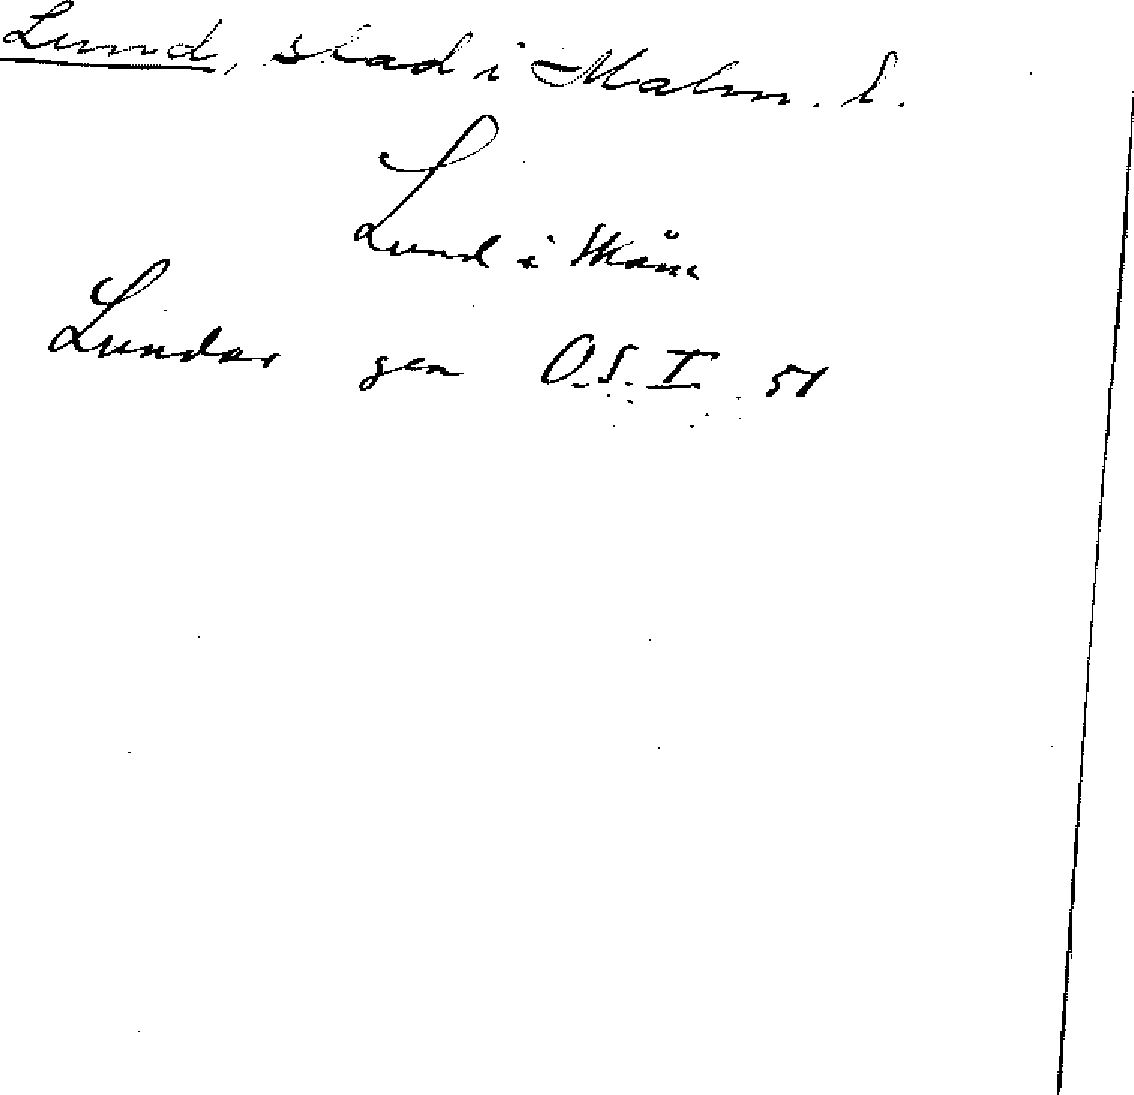 Lund, stad i Malm. l.
Lund i Skåne
Lundar gen O.S. I 51